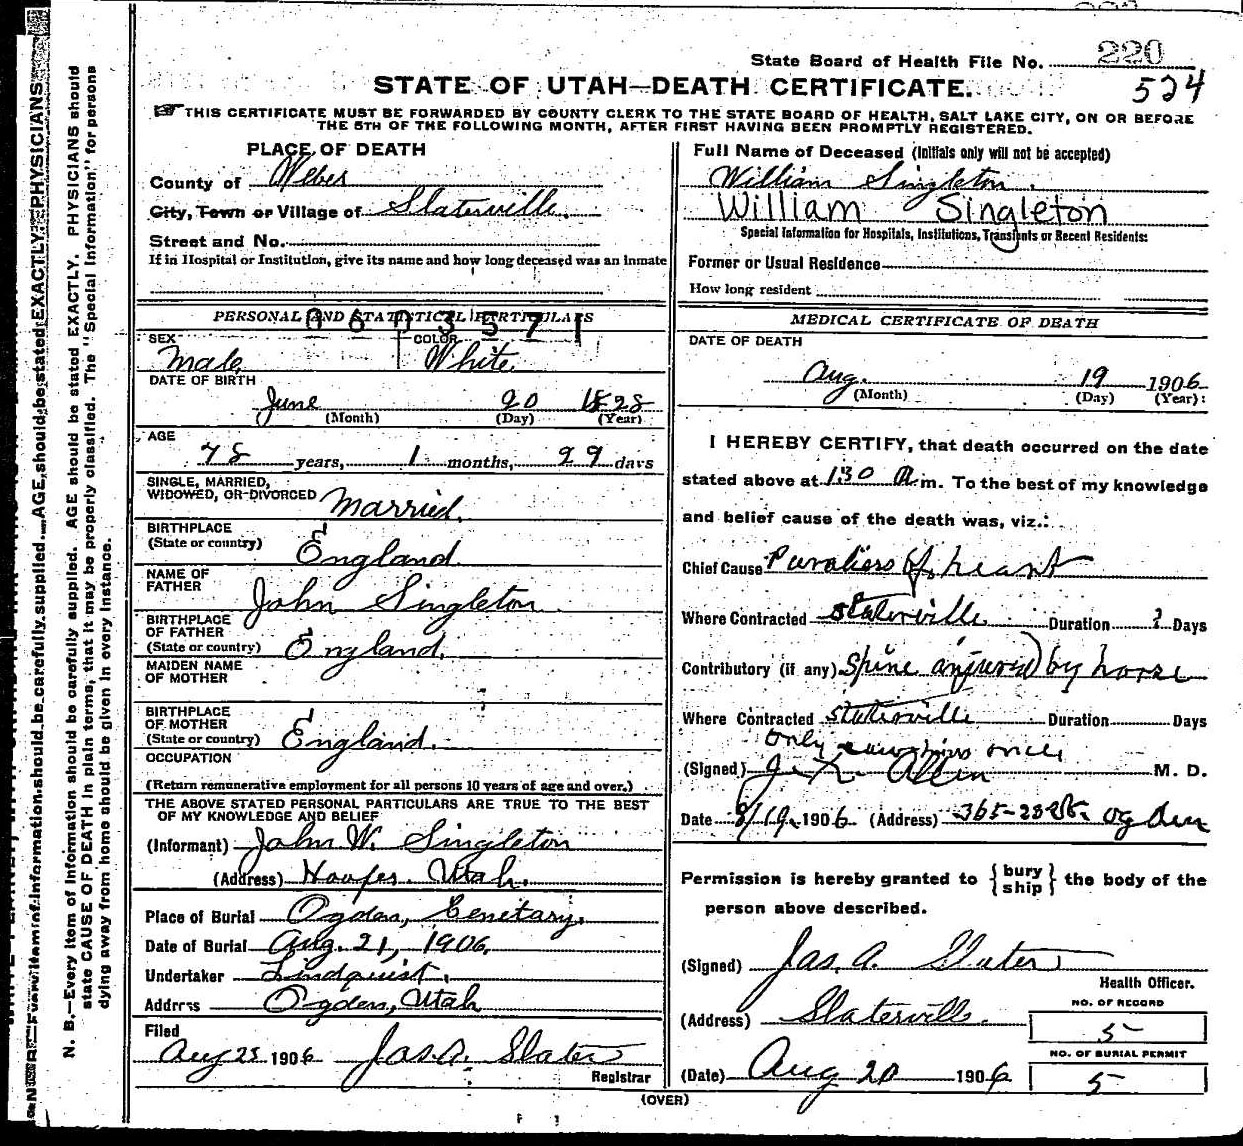 State Board of Health File No. 220
524
STATE OF UTAH—DEATH CERTIFICATE.
THIS CERTIFICATE MUST BE FORWARDED BY COUNTY CLERK TO THE STATE BOARD OF HEALTH, SALT LAKE CITY, ON OR BEFORE
THE 5TH OF THE FOLLOWING MONTH, AFTER FIRST HAVING BEEN PROMPTLY REGISTERED.
N. B.—Every item of information should be carefully supplied. AGE should be stated EXACTLY. PHYSICIANS should
state CAUSE OF DEATH in plain terms, that it may be properly classified. The "Special Information" for persons
dying away from home should be given in every instance.
PLACE OF DEATH
County of Weber
City, Town or Village of Slaterville
Street and No.
If in Hospital or Institution, give its name and how long deceased was an inmate
PERSONAL AND STATISTICAL PARTICULARS
0603571
SEX COLOR
Male White
DATE OF BIRTH
June 20 1828
(Month) (Day) (Year)
AGE
78 years, 1 months, 29 days
SINGLE, MARRIED,
WIDOWED, OR DIVORCED Married
BIRTHPLACE
(State or country) England
NAME OF
FATHER John Singleton
BIRTHPLACE
OF FATHER
(State or country) England.
MAIDEN NAME
OF MOTHER
BIRTHPLACE
OF MOTHER
(State or country) England.
OCCUPATION
(Return remunerative employment for all persons 10 years of age and over.)
THE ABOVE STATED PERSONAL PARTICULARS ARE TRUE TO THE BEST
OF MY KNOWLEDGE AND BELIEF
(Informant) John W. Singleton
(Address) Hooper Utah.
Place of Burial Ogden, Cemitary.
Date of Burial Aug. 21, 1906.
Undertaker Lindquist.
Address Ogden, Utah
Filed
Aug 25 1906 Jas. A. Slater
Registrar
Full Name of Deceased (Initials only will not be accepted)
William Singleton.
William Singleton
Special Information for Hospitals, Institutions, Transients or Recent Residents:
Former or Usual Residence
How long resident
MEDICAL CERTIFICATE OF DEATH
DATE OF DEATH
Aug. 19 1906
(Month) (Day) (Year)
I HEREBY CERTIFY, that death occurred on the date
stated above at 1:30 A m. To the best of my knowledge
and belief cause of the death was, viz.:
Chief Cause Paraliers of heart
Where Contracted Slaterville Duration ? Days
Contributory (if any) Spine injured by horse
Where Contracted Slaterville Duration Days
only once
(Signed) Allen M. D.
Date 8/19 1906 (Address) 365-23 St. Ogden
Permission is hereby granted to { bury ship } the body of the
person above described.
(Signed) Jas. A. Slater
Health Officer.
(Address) Slaterville.
NO. OF RECORD
5
NO. OF BURIAL PERMIT
5
(Date) Aug 20 1906
(OVER)